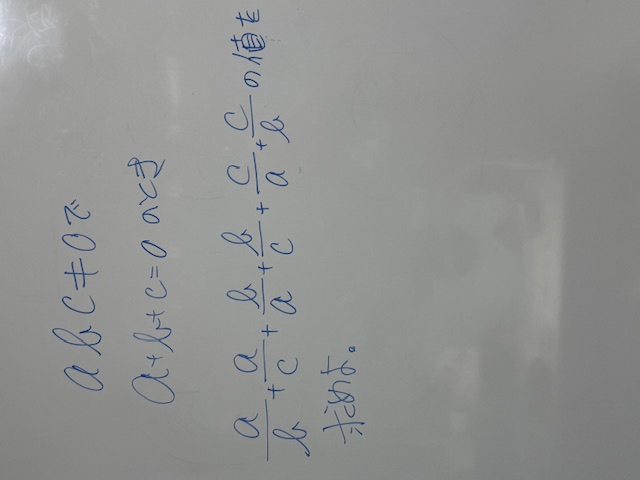 abc≠0で
a+b+c=0のとき
a/b + a/c + b/a + b/c + c/a + c/b の値を
求めよ。